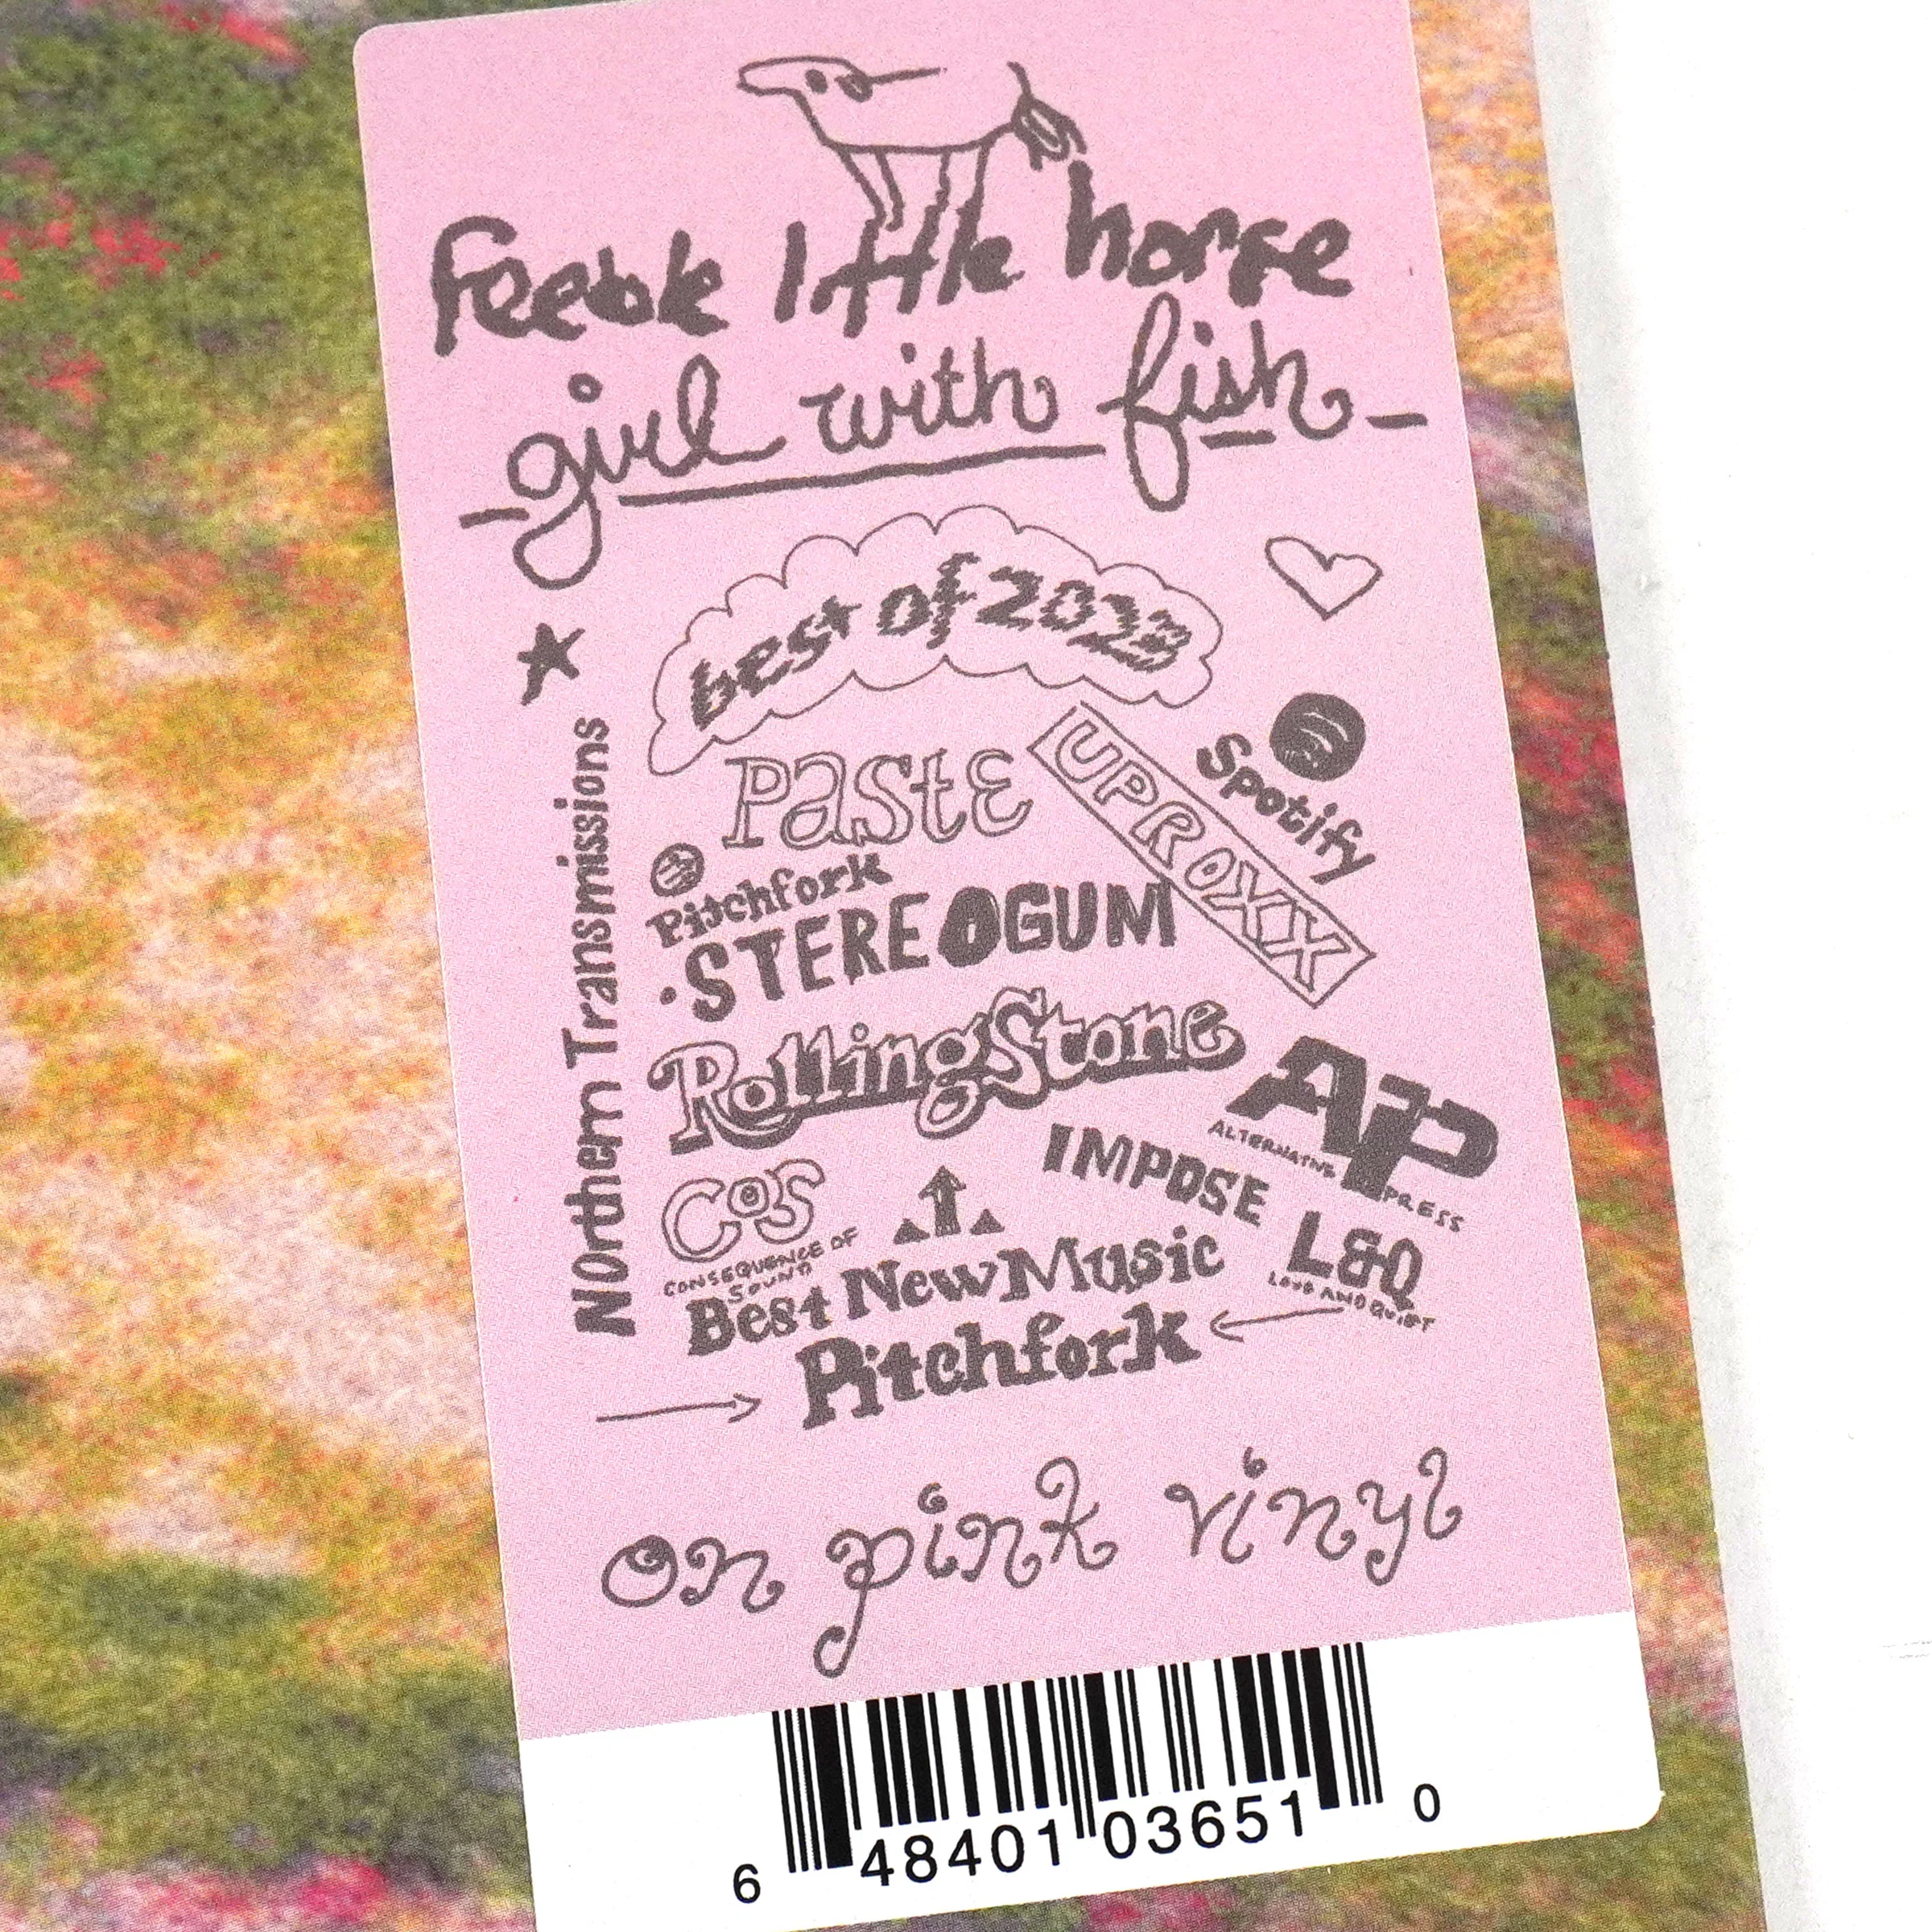 feeble little horse
girl with fish
best of 2023
Northern Transmissions
Paste
UPROXX
Spotify
Pitchfork
STEREOGUM
RollingStone
AP
ALTERNATIVE PRESS
IMPOSE
CoS
CONSEQUENCE OF
SOUND
L&Q
LOUD AND QUIET
Best New Music
Pitchfork
on pink vinyl
6 48401 03651 0